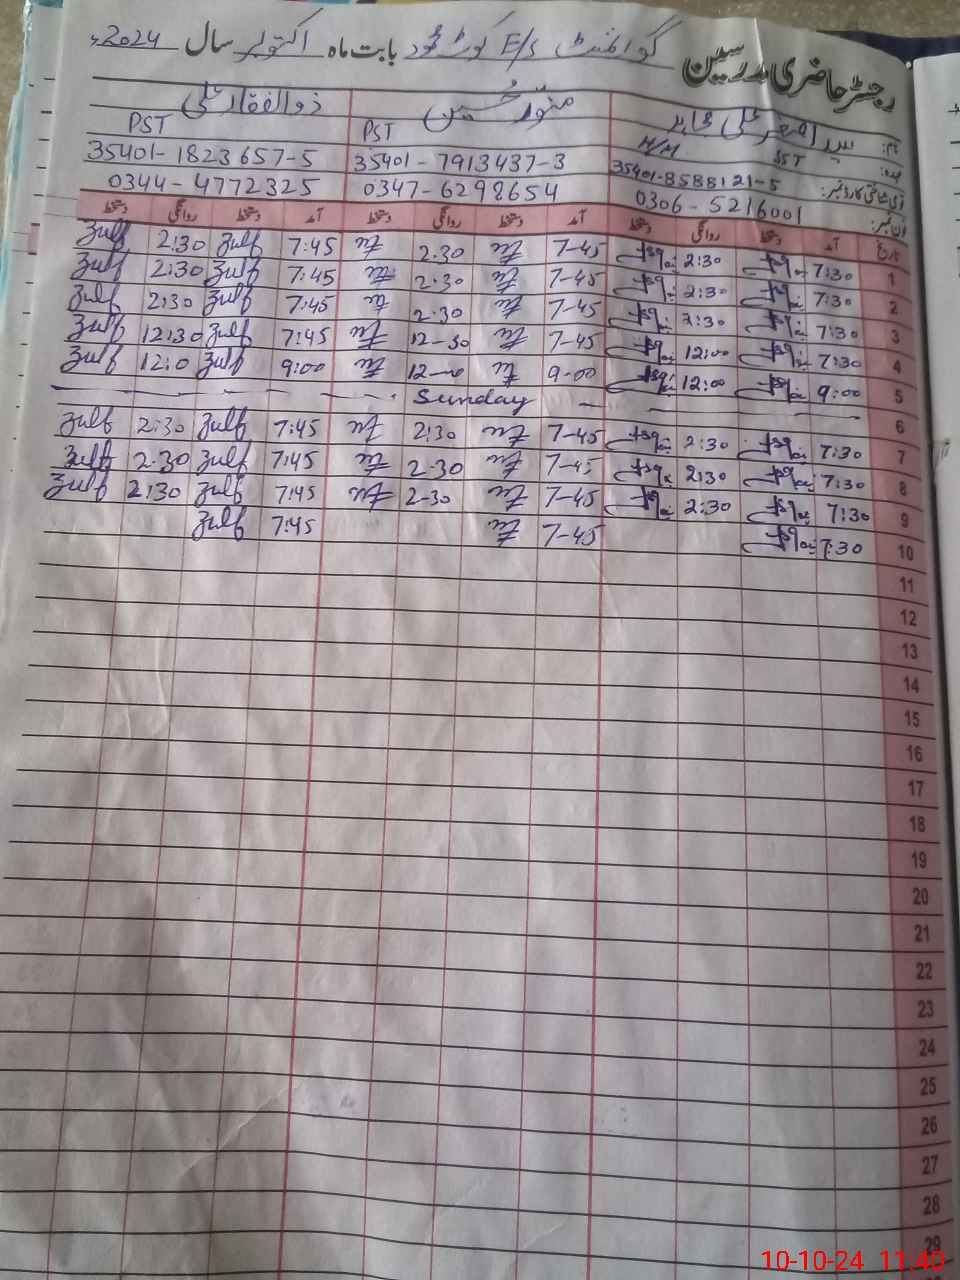 رجسٹر حاضری مدرسین گورنمنٹ E/S کوٹ محمود بابت ماہ اکتوبر سال 2024ء
نام: سید اصغر علی منور حسین ذوالفقار علی
عہدہ: SST H/M PST PST
آئی شناختی کارڈ نمبر: 35401-8588121-5 35401-7913437-3 35401-1823657-5
فون نمبر: 0306-5216001 0347-6298654 0344-4772325
تاریخ آمد دستخط روانگی دستخط آمد دستخط روانگی دستخط آمد دستخط روانگی دستخط
1 7:30 2:30 7-45 2.30 7:45 Zulf 2:30 Zulf
2 7:30 2:30 7-45 2-30 7:45 Zulf 2:30 Zulf
3 7:30 2:30 7-45 2-30 7:45 Zulf 2:30 Zulf
4 7:30 12:00 7-45 12-30 7:45 Zulf 12:30 Zulf
5 9:00 12:00 9-00 12-00 9:00 Zulf 12:0 Zulf
6 Sunday
7 7:30 2:30 7-45 2:30 7:45 Zulf 2:30 Zulf
8 7:30 2:30 7-45 2-30 7:45 Zulf 2-30 Zulf
9 7:30 2:30 7-45 2-30 7:45 Zulf 2:30 Zulf
10 7:30 7-45 7:45 Zulf
11
12
13
14
15
16
17
18
19
20
21
22
23
24
25
26
27
28
29
10-10-24 11:40